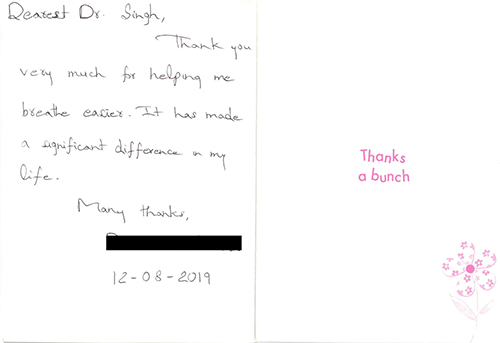 Dearest Dr. Singh,
Thank you
very much for helping me
breathe easier. It has made
a significant difference in my
life.
Many thanks,
12-08-2019
Thanks
a bunch